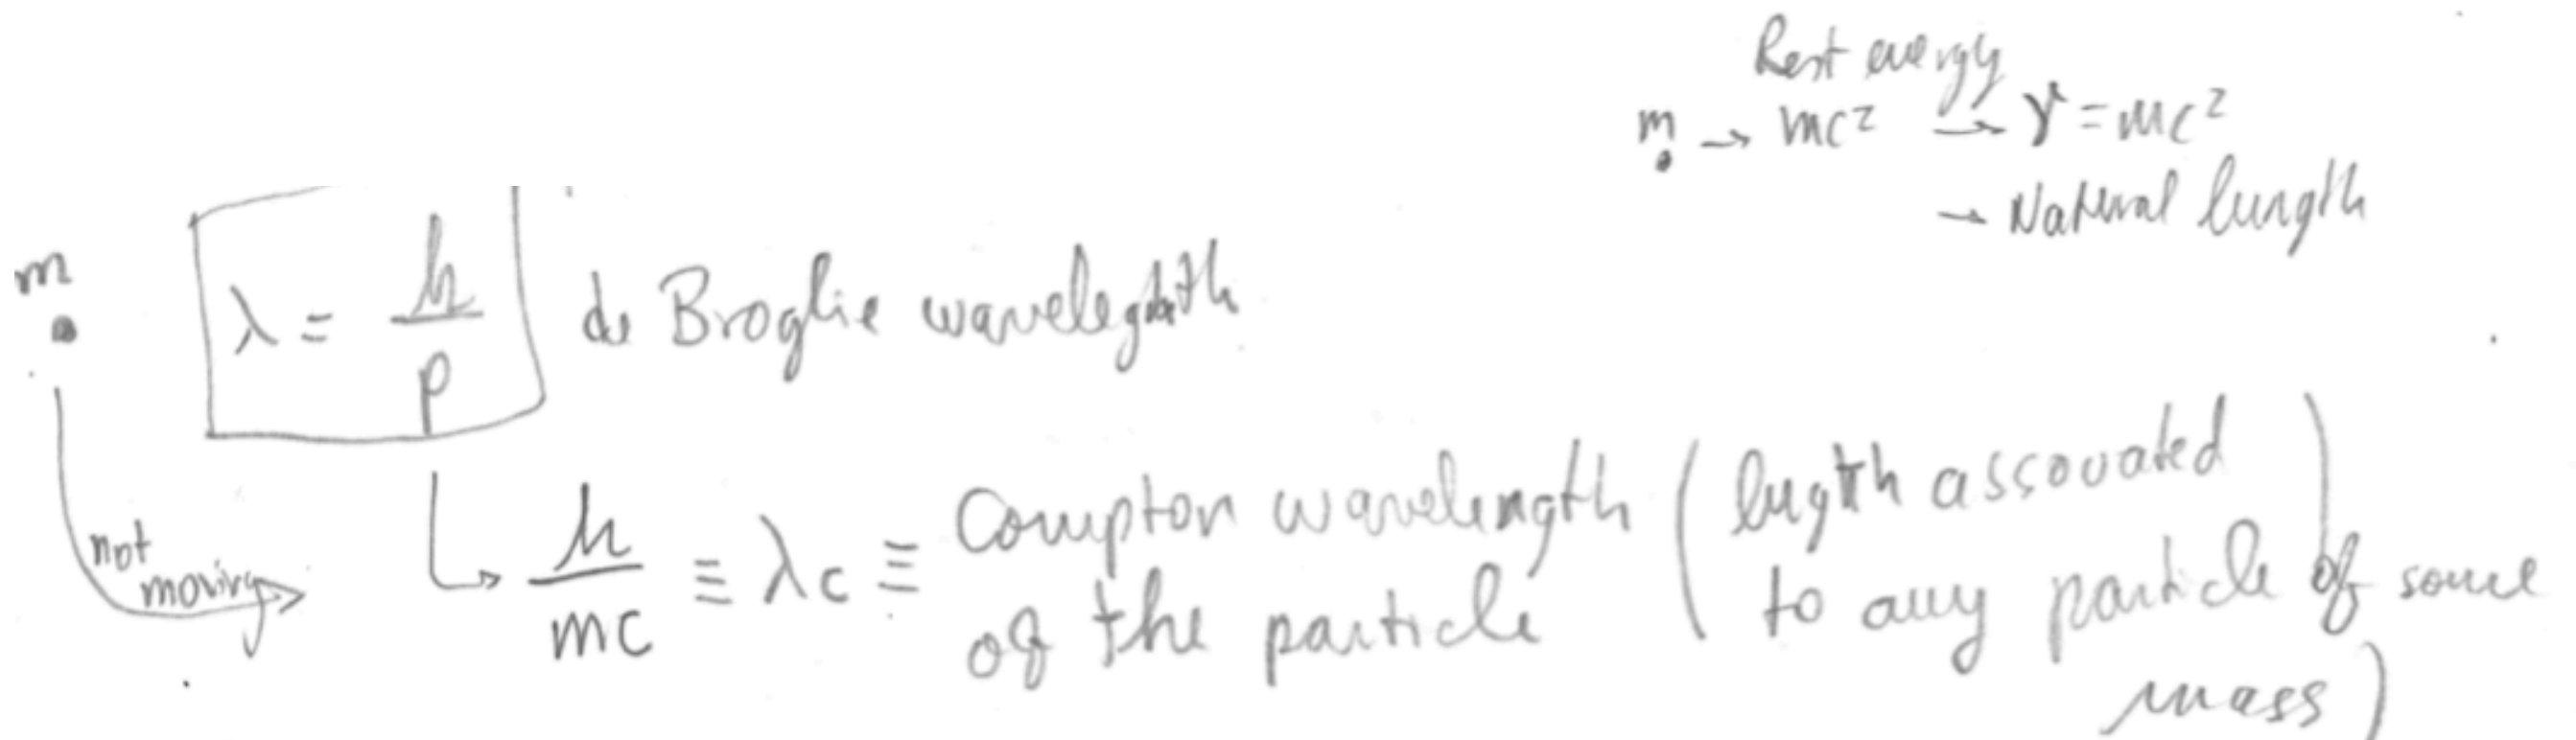 Rest energy
m → mc² → γ = mc²
→ Natural length
m
λ = h/p de Broglie wavelegth
not moving
h/mc ≡ λc ≡ Compton wavelength (length associated
of the particle to any particle of some
mass)